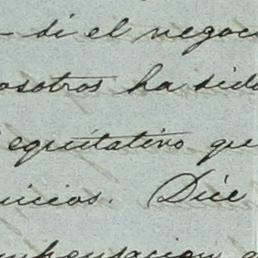 si el negoc
osotros ha sid
equitativo que
uicios. Dice
mpensacion